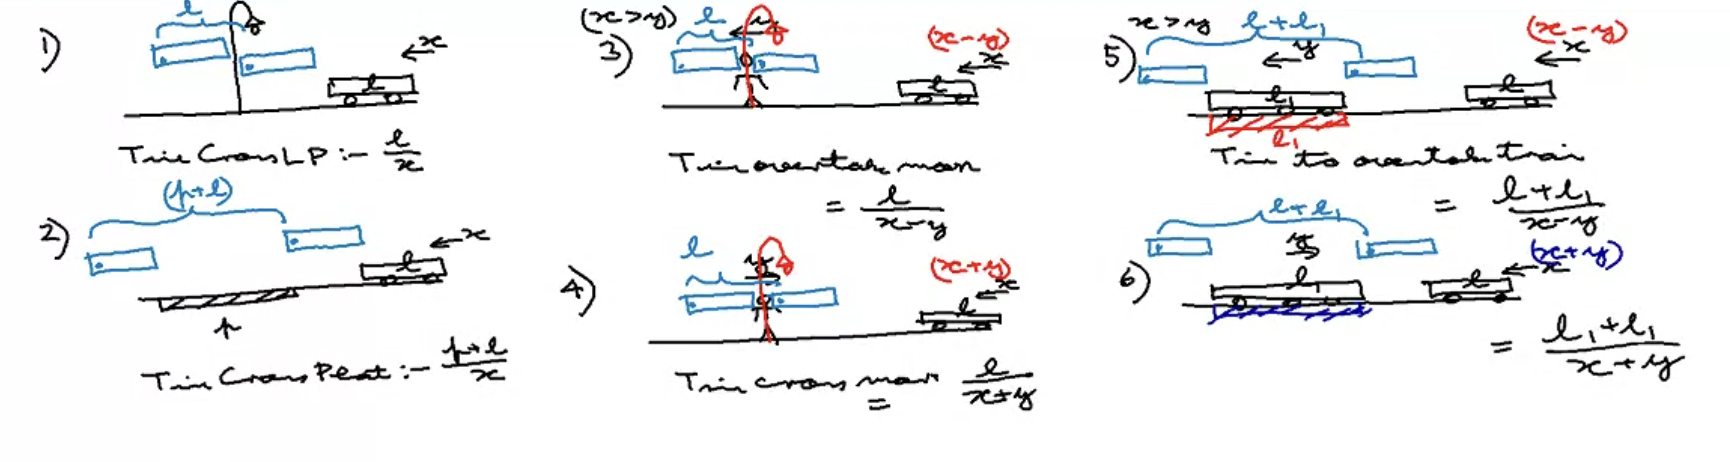 1)
l
x
l
Time Cross LP :- l/x
2)
(p+l)
x
l
p
Time Cross Plat :- p+l/x
(x>y)
3)
l
y
(x-y)
x
l
Time overtake man
= l/x-y
4)
l
y
(x+y)
x
l
Time cross man
= l/x+y
x>y
5)
l+l₁
y
(x-y)
x
l₁
l
l₁
Time to overtake train
= l+l₁/x-y
6)
l+l₁
y
(x+y)
x
l₁
l
= l₁+l₁/x+y